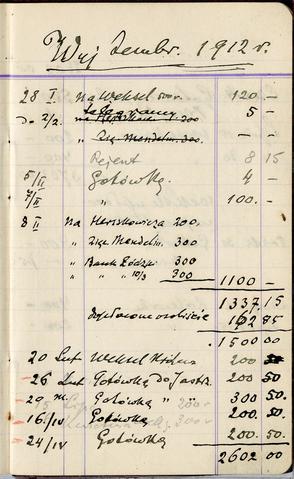 Wuj Zembr. 1912 r.
28 I. na Weksel 500 r. 120 –
Do 2/2. telegramy 5 –
na Herszkowicza 200
" Zkę Mendeln. 300.
Rejent 8 15
5/II Gotówką 4 –
7/II " 100. –
8 II na Herszkowicza 200.
" Zkę Mendeln. 300
" Bank Łódzki 300
" " " 10/3 300 1100 –
1337.15
162 85
1500 00
20 Lut Weksel 200 50
26 Lut Gotówką do Jastrz. 200 50.
29 m. Gotówką " " 300 50.
16/IV Gotówką 200. 50
24/IV Gotówką 200. 50
2602 00